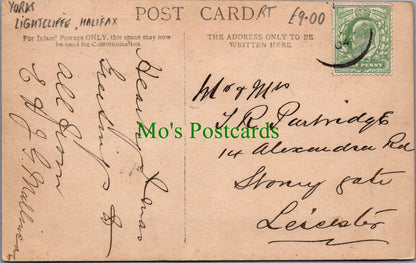 YORKS
LIGHTCLIFFE, HALIFAX
POST CARD
RT
£9-00
For Inland Postage ONLY, this space may now
be used for Communication.
THE ADDRESS ONLY TO BE
WRITTEN HERE
Hearty Xmas
Greetings to
all from
E H & G Mallinson
Mr & Mrs
T. R. Partridge
14 Alexandra Rd
Stoney gate
Leicester
PENNY
Mo's Postcards